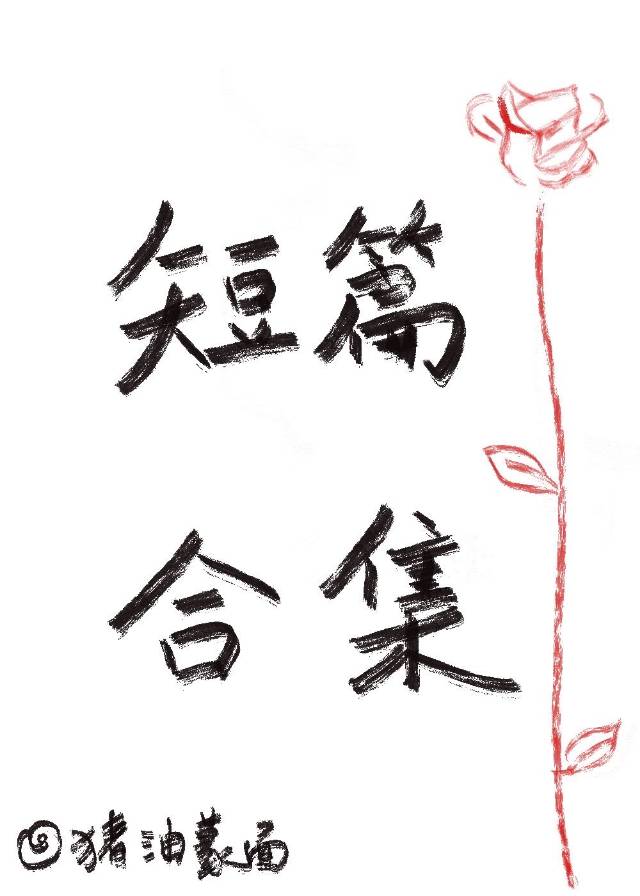 短篇
合集
@猪油蒙面